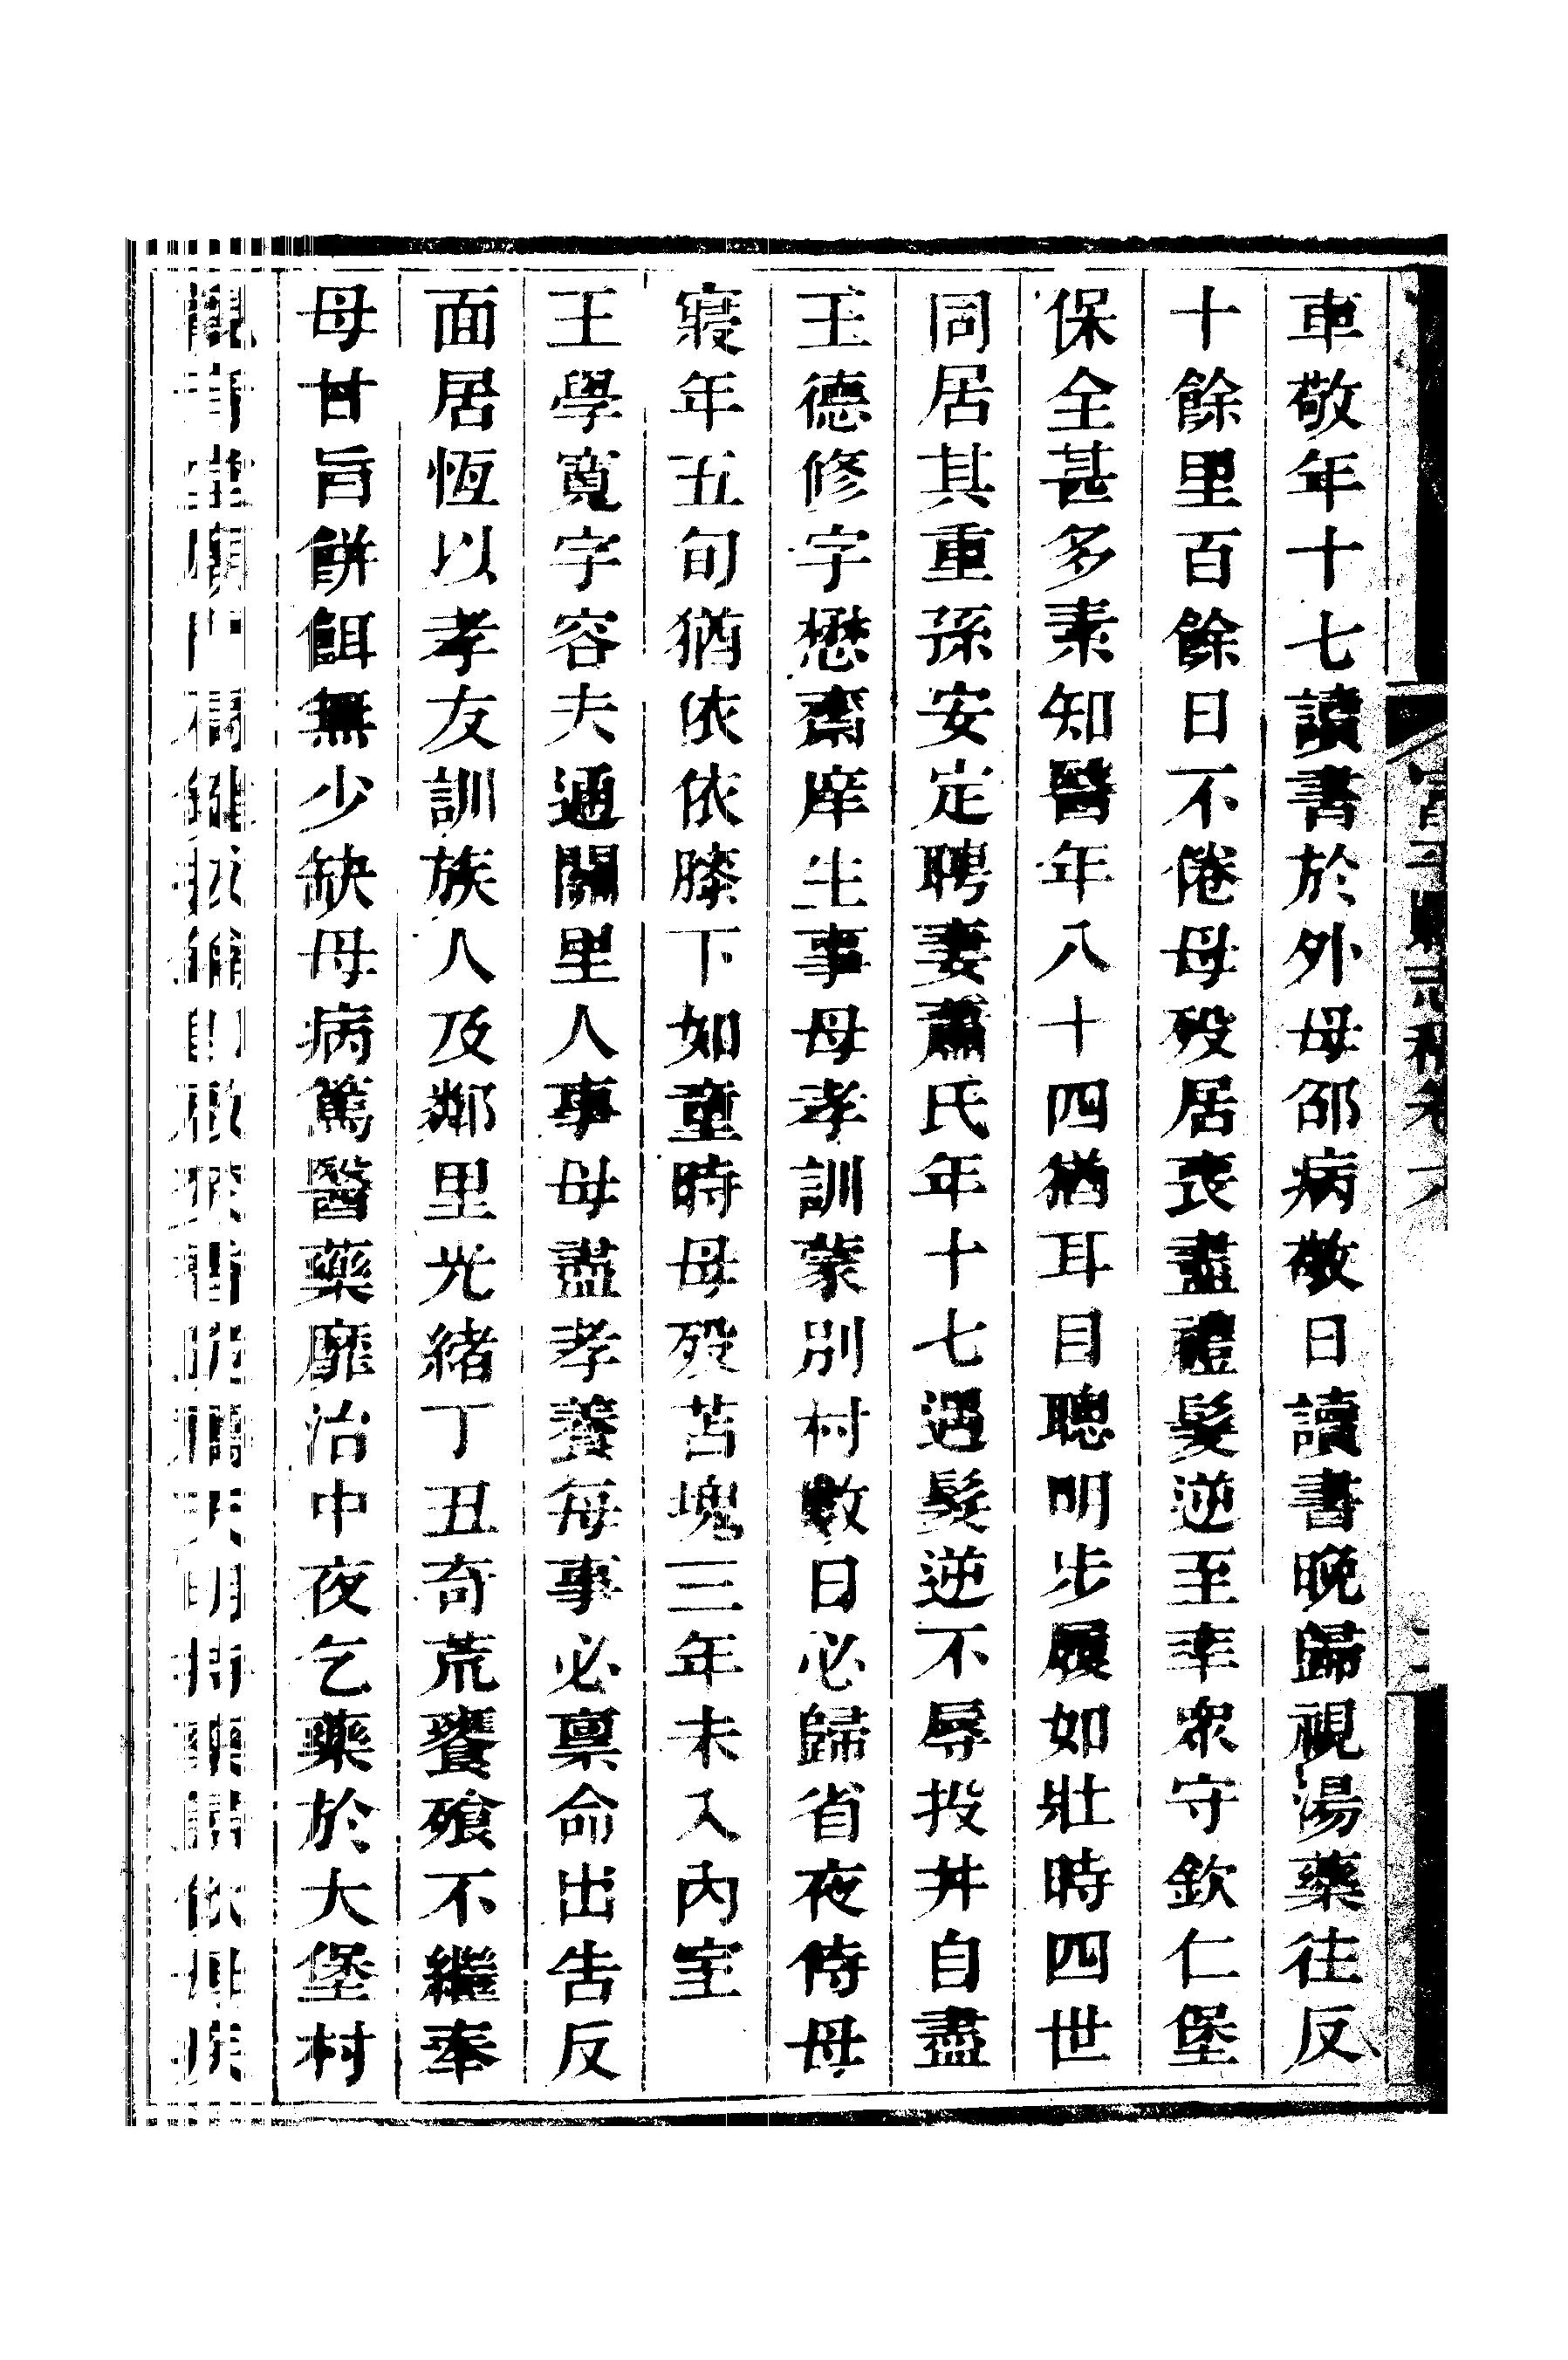 富平縣志稿卷
車敬年十七讀書於外母邵病敬日讀書晚歸視湯藥往反
十餘里百餘日不倦母歿居喪盡禮髮逆至率眾守欽仁堡
保全甚多素知醫年八十四猶耳目聰明步履如壯時四世
同居其重孫安定聘妻蕭氏年十七遇髮逆不辱投井自盡
王德修字懋齋庠生事母孝訓蒙別村數日必歸省夜侍母
寢年五旬猶依依膝下如童時母歿苫塊三年未入內室
王學寬字容夫通關里人事母盡孝養每事必稟命出告反
面居恆以孝友訓族人及鄰里光緒丁丑奇荒饔飧不繼奉
母甘旨餅餌無少缺母病篤醫藥靡治中夜乞藥於大堡村
觀音堂廟門 天明 藥 母疾